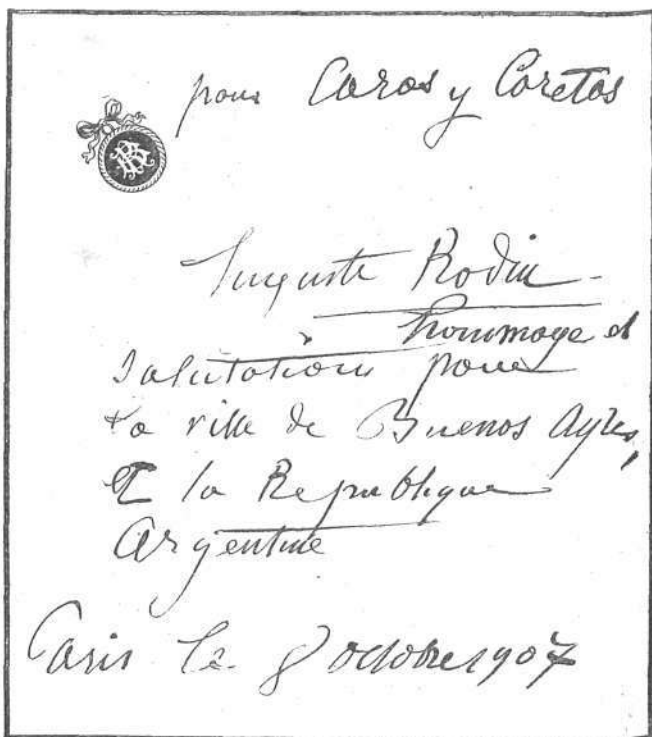 pour Caras y Caretas
Auguste Rodin
hommage et
salutations pour
la ville de Buenos Ayres,
et la Republique
Argentine
Paris le 8 octobre 1907